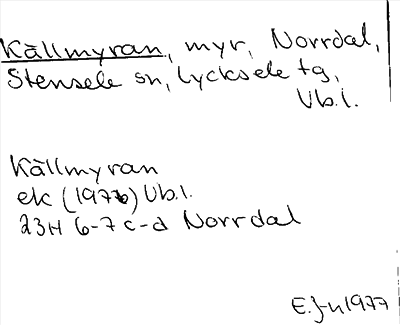 Källmyran, myr, Norrdal,
Stensele sn, Lycksele tg,
Vb.l.
Källmyran
ek (1976) Vb.l.
23H 6-7 c-d Norrdal
E. J-n 1977